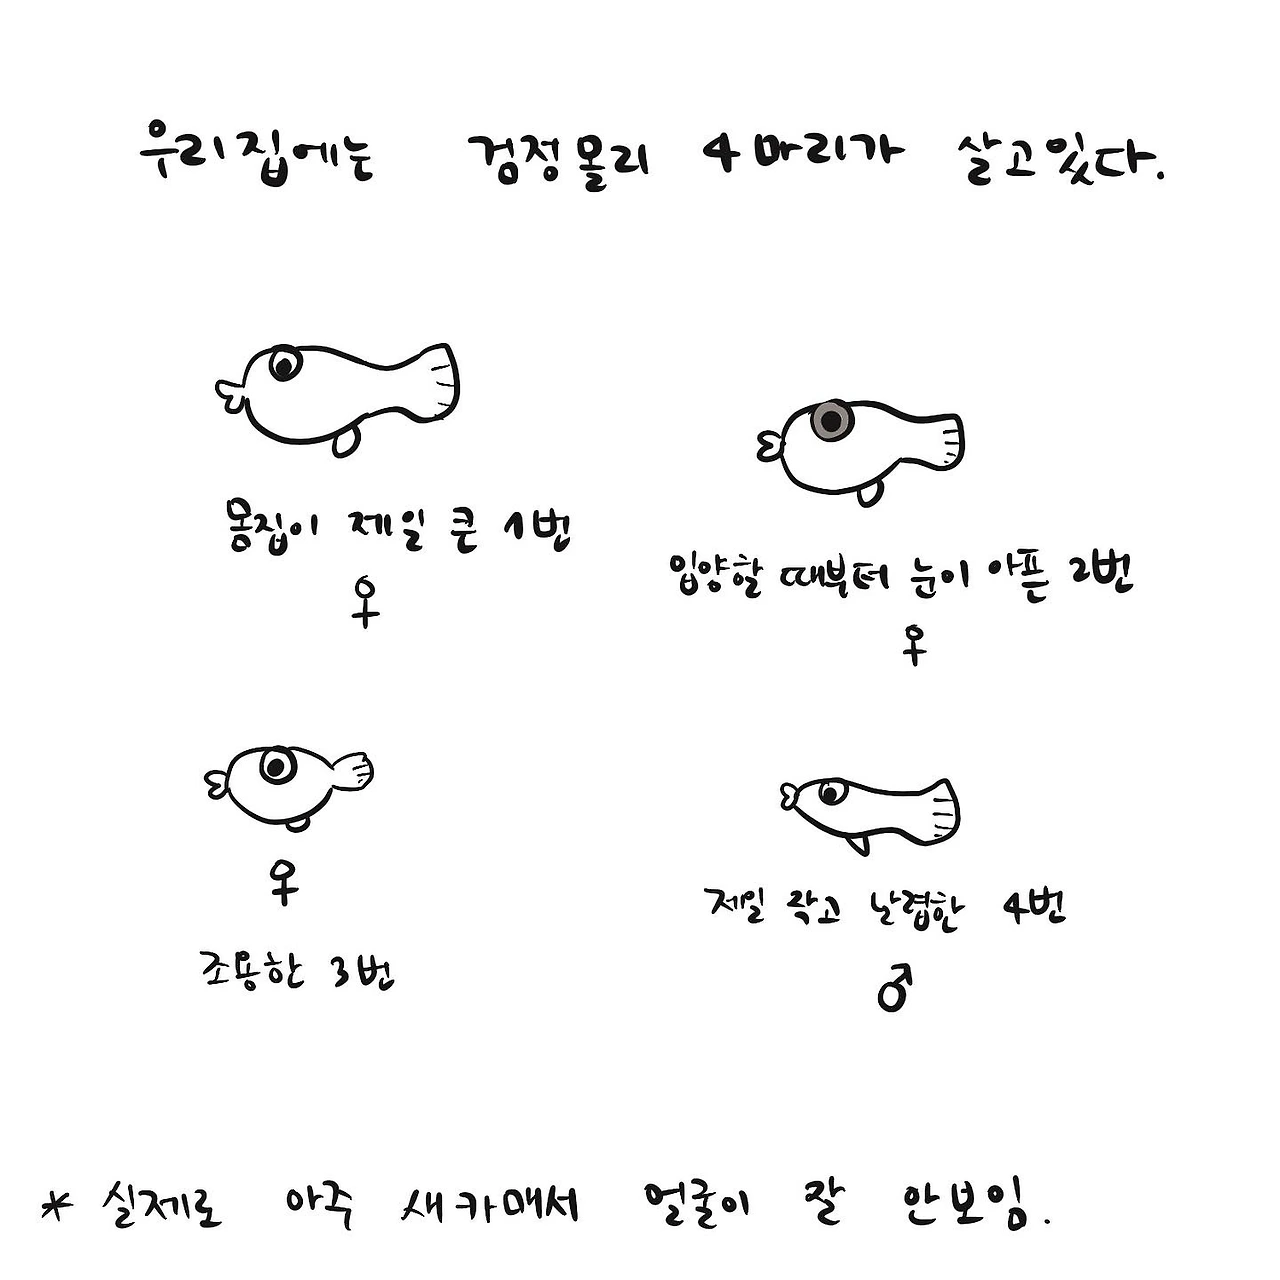 우리집에는 검정몰리 4마리가 살고있다.
몸집이 제일 큰 1번
♀
입양할 때부터 눈이 아픈 2번
♀
♀
조용한 3번
제일 작고 날렵한 4번
♂
* 실제로 아주 새카매서 얼굴이 잘 안보임.